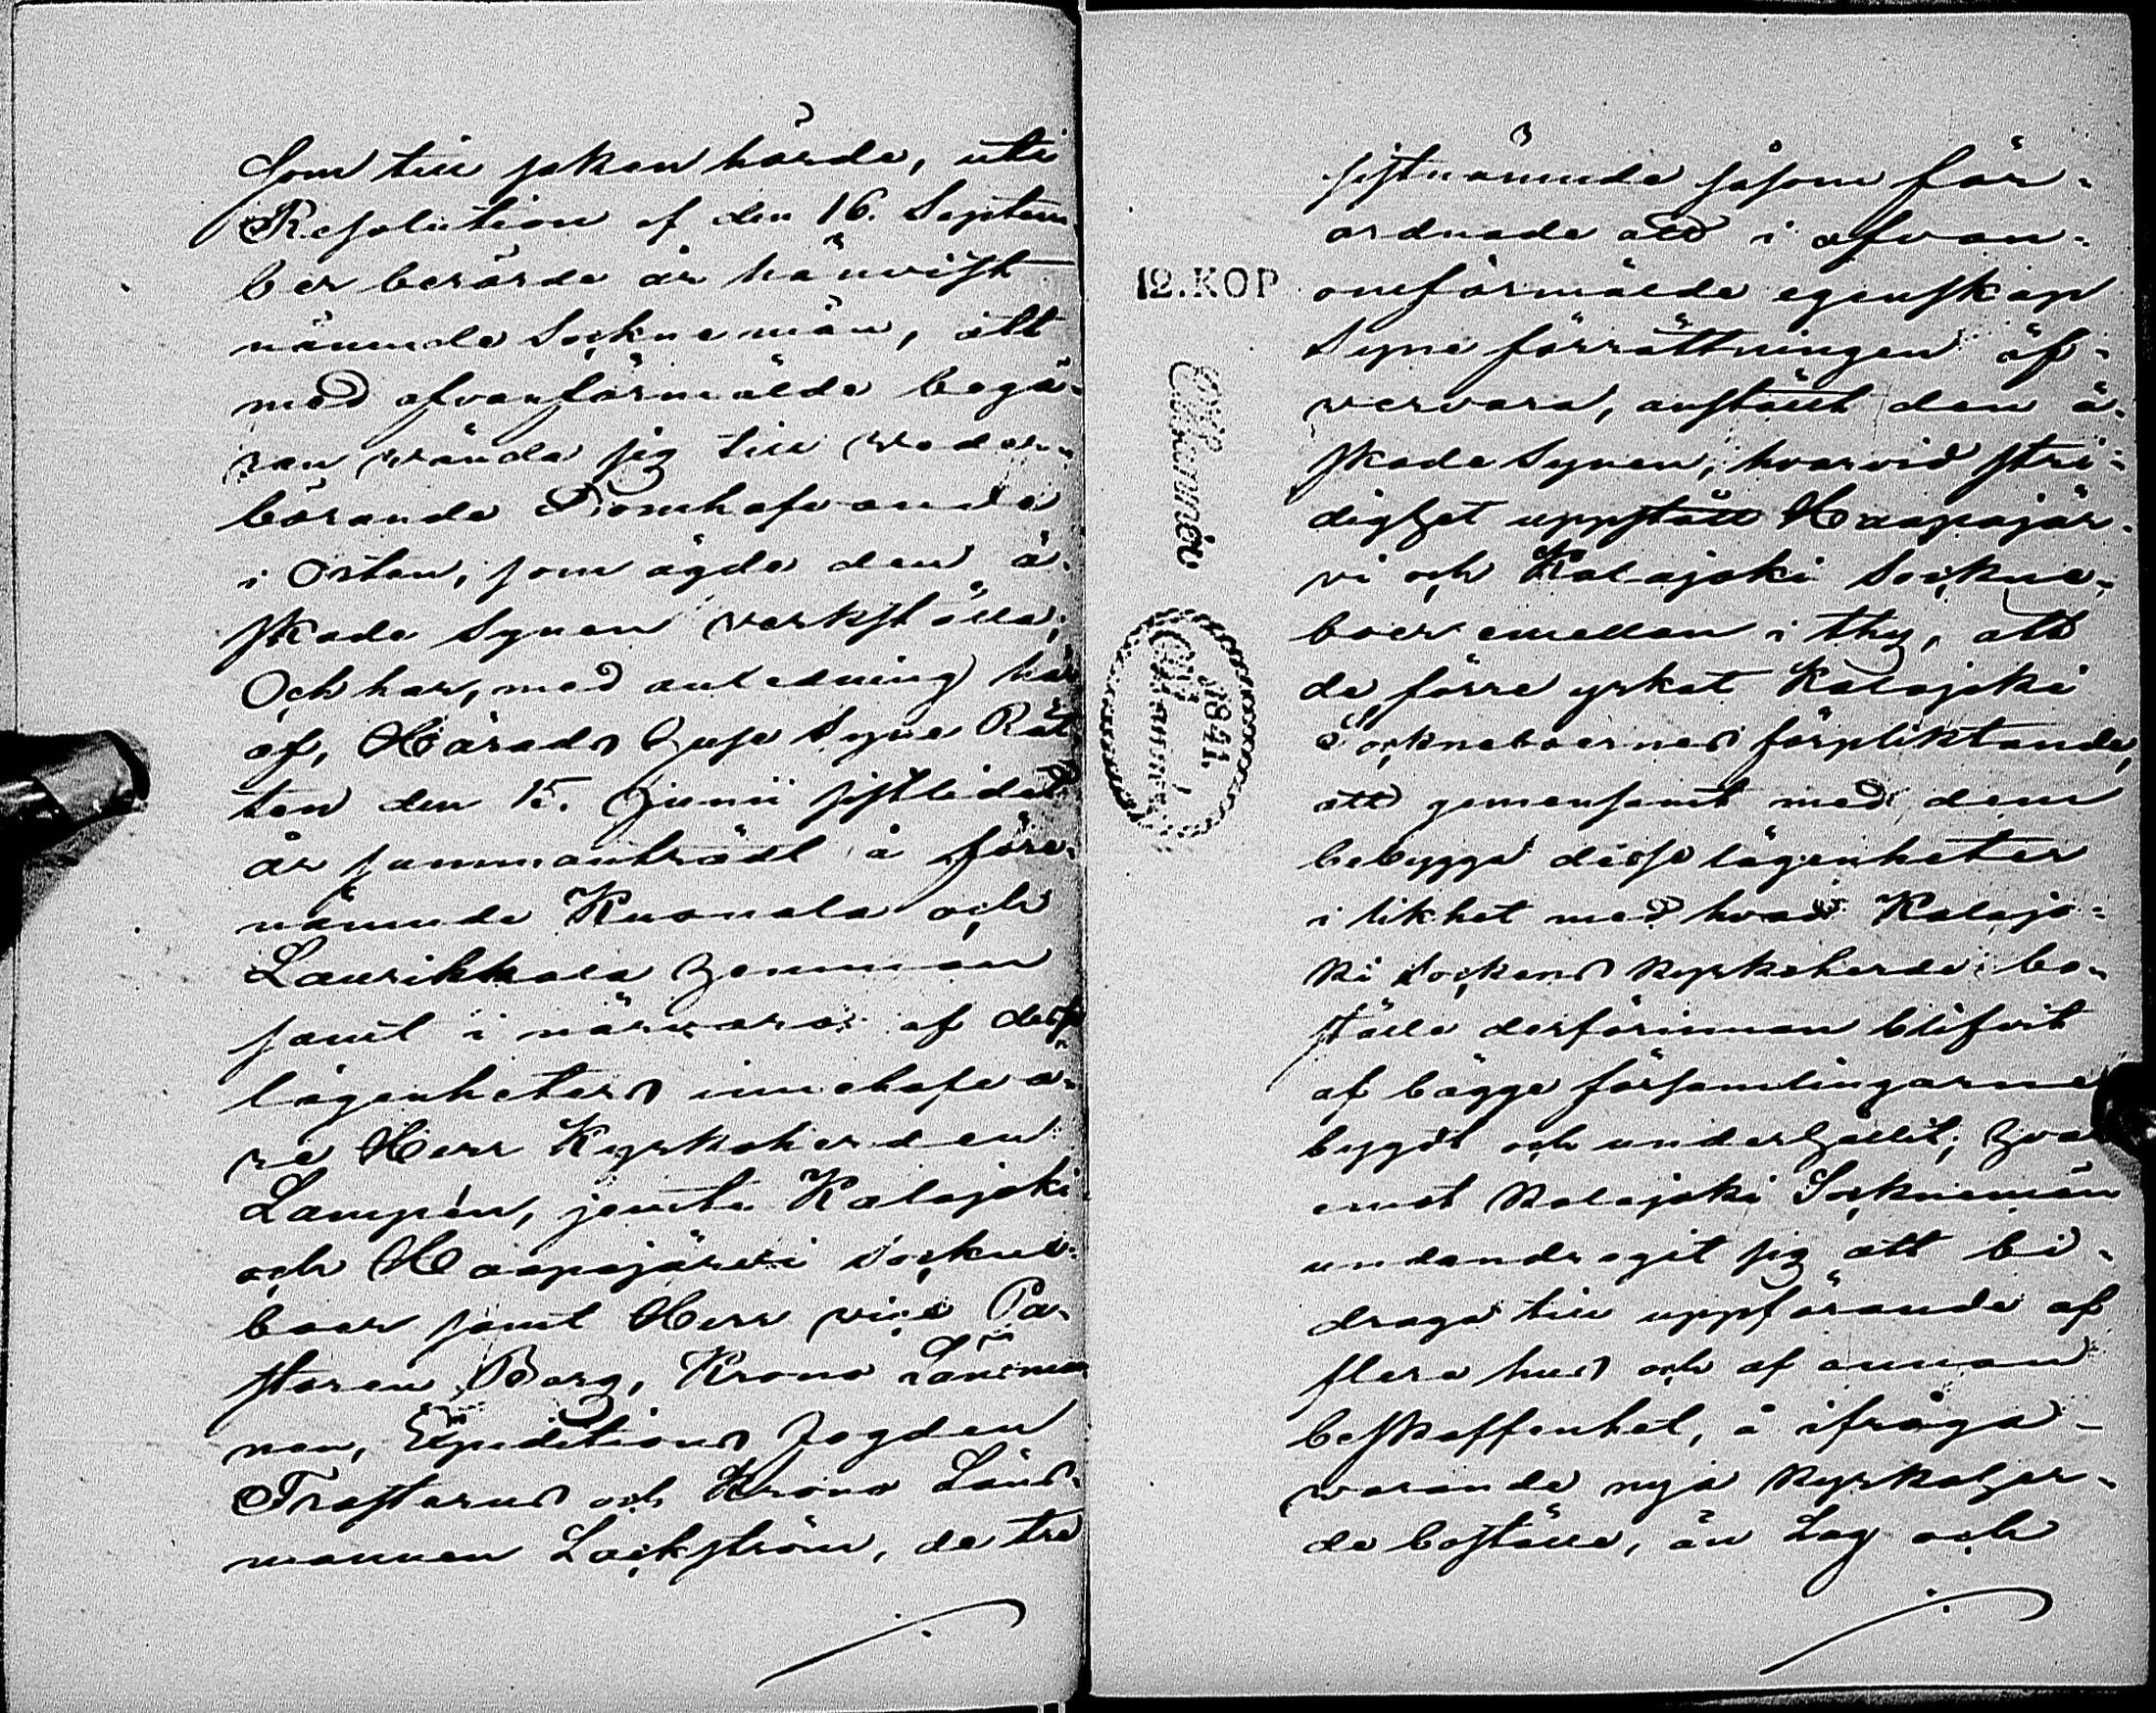 som till saken hörde, uti
Resolution af den 16. Septem
ber berörde år hänvist
nämnde Sockne män, att
med ofvanförmälde begä-
ran vända sig till veder-
börande Domhafvande
i Orten, som ägde den ä-
skade Synen verkställa;
Och har, med anledning här
af, Härads Huse Syne Rät
ten den 15. Junii sistledit
år sammanträdt å före-
nämnde Kusnala och
Laurikkala hemman
samt i närvaro af dess
lägenheters innehafva-
re Herr Kyrkoherden
Lampén, jemte Kalajoki
och Haapajärvi Sockne-
boer samt Herr vice Pa-
storen Borg, Krono Länsman
nen, Expeditions Fogden
Frosterus och Krono Läns-
mannen Lockström, de tre
sistnämnde såsom för-
ordnade att i ofvan-
omförmälde egenskap
Syne förrättningen öf-
vervara, anstäldt den ä-
skade Synen, hvarvid stri-
dighet uppstått Haapajär-
vi och Kalajoki Sockne-
boer emellan i thy, att
de förre yrkat Kalajoki
Sockneboernes förpliktande,
att gemensamt med dem
bebygga desse lägenheter
i likhet med hvad Kalajo-
ki Sockens Kyrkoherde bo-
ställe derförinnan blifvit
af bägge församlingarne
bygdt och underhållit; hvar
emot Kalajoki Socknemän
undandragit sig att bi-
draga till uppförande af
flera hus och af annan
beskaffenhet, å ifråga-
varande nya Kyrkoher-
de boställe, än Lag och
12. KOP
1841.